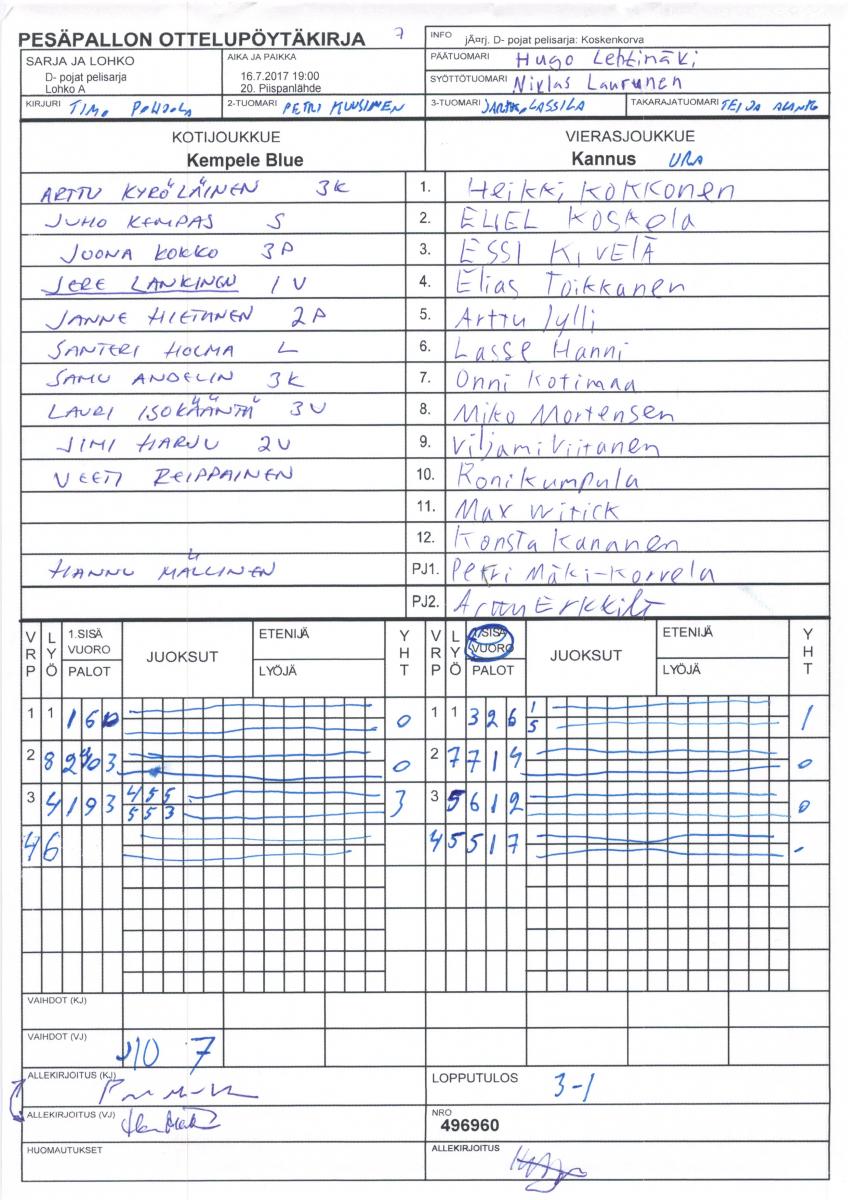 PESÄPALLON OTTELUPÖYTÄKIRJA 7
INFO jÃ¤rj. D- pojat pelisarja: Koskenkorva
SARJA JA LOHKO
D- pojat pelisarja
Lohko A
AIKA JA PAIKKA
16.7.2017 19:00
20. Piispanlähde
PÄÄTUOMARI Hugo Lehtinäki
SYÖTTÖTUOMARI Niklas Laurunen
KIRJURI TIMO POHJOLA 2-TUOMARI PETRI MUUSIMEN 3-TUOMARI JARKKO LASSILA TAKARAJATUOMARI TEIJA ALANKO
KOTIJOUKKUE
Kempele Blue
VIERASJOUKKUE
Kannus URA
ARTTU KYRÖLÄINEN 3K 1. Heikki KOKKONEN
JUHO KEMPAS S 2. ELIEL KOSKELA
JOONA KOKKO 3P 3. ESSI KIVELÄ
JERE LANKINGU 1V 4. Elias Toikkanen
JANNE HIETANEN 2P 5. Arttu Jylli
SANTERI HOLMA L 6. Lasse Hanni
SAMU ANDELIN 3K 7. Onni Kotimaa
LAURI ISOKÄÄNTÄ 3V 8. Miko Mortensen
JIMI HARJU 2V 9. Viljami Viitanen
VEETI REIPPAINEN 10. Roni Kumpula
11. Max Witick
12. Konsta Kananen
HANNU MÄLLINEN PJ1. Petri Mäki-Korvela
PJ2. Arttu Erkkilä
VRP LYÖ 1.SISÄ VUORO PALOT JUOKSUT ETENIJÄ LYÖJÄ YHT VRP LYÖ 1.SISÄ VUORO PALOT JUOKSUT ETENIJÄ LYÖJÄ YHT
1 1 1 6 0 0 1 1 3 2 6 1 5 1
2 8 2 3 0 2 7 7 1 4 0
3 4 1 9 3 4 5 5 5 5 3 3 3 5 6 1 2 0
4 6 4 5 5 1 7 -
VAIHDOT (KJ)
VAIHDOT (VJ) 10 7
ALLEKIRJOITUS (KJ)
LOPPUTULOS 3-1
ALLEKIRJOITUS (VJ)
NRO
496960
HUOMAUTUKSET
ALLEKIRJOITUS